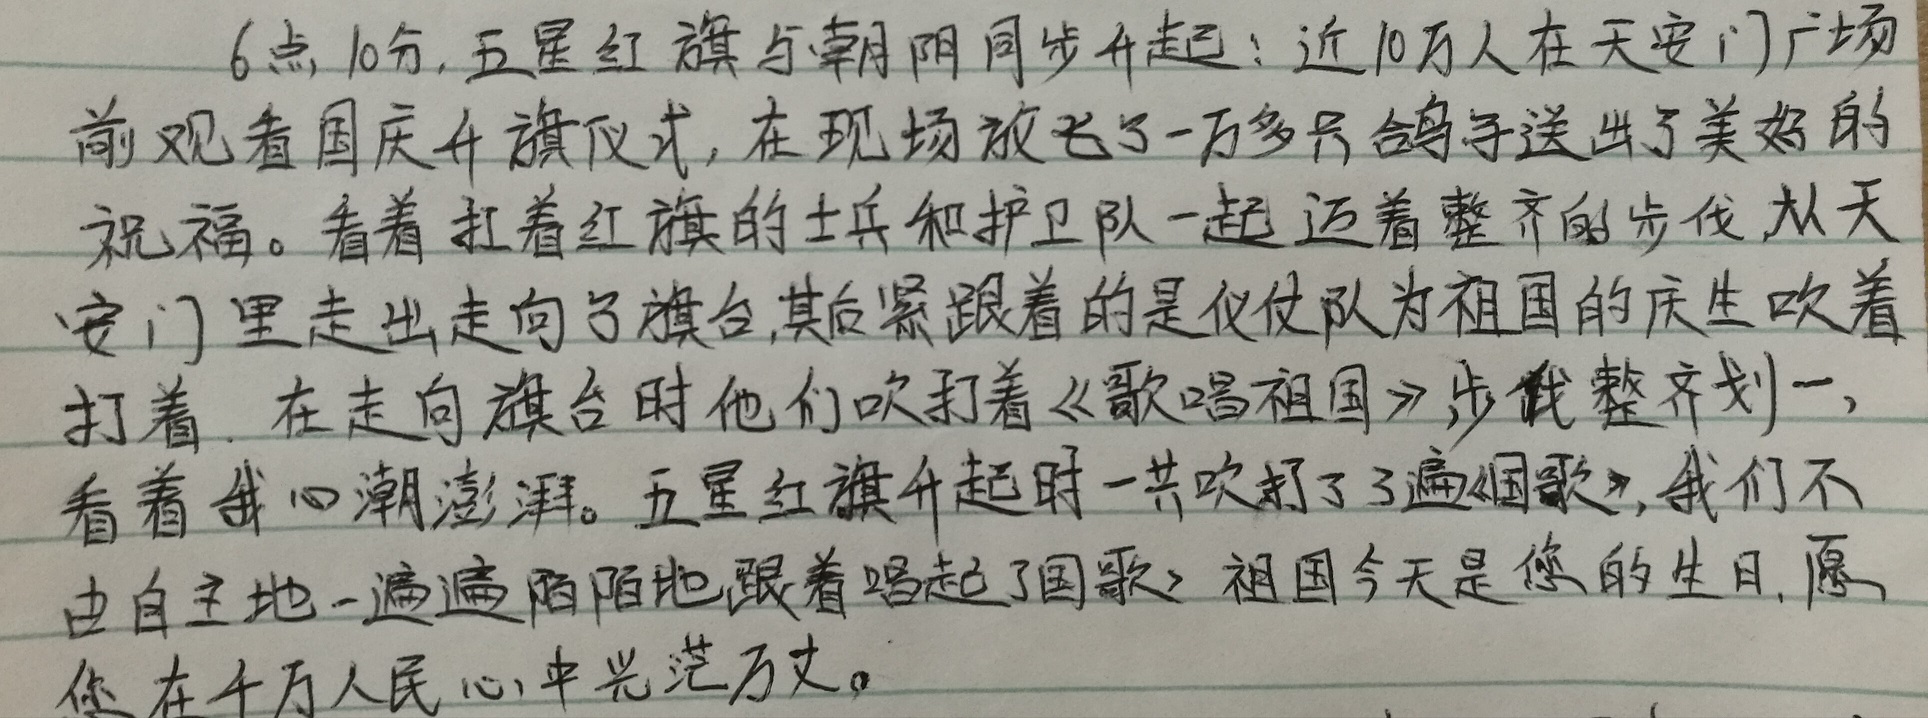 6点10分,五星红旗与朝阴同步升起:近10万人在天安门广场
前观看国庆升旗仪式,在现场放飞了一万多只鸽子送出了美好的
祝福。看着扛着红旗的士兵和护卫队一起迈着整齐的步伐,从天
安门里走出走向了旗台,其后紧跟着的是仪仗队为祖国的庆生吹着
打着.在走向旗台时他们吹打着《歌唱祖国》,步伐整齐划一,
看着我心潮澎湃。五星红旗升起时一共吹打了3遍《国歌》,我们不
由自主地一遍遍陌陌地跟着唱起了国歌》祖国今天是您的生日,愿
您在千万人民心中光茫万丈。